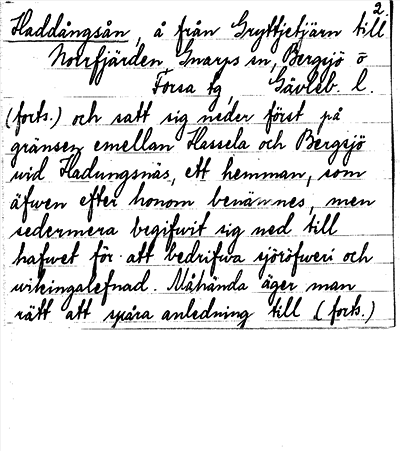 2.
Haddångsån, å från Gryttjetjärn till
Norrfjärden Gnarps sn, Bergsjö o
Forsa tg, Gävleb. l.
(forts.) och satt sig neder först på
gränsen emellan Hassela och Bergsjö
wid Hadungsnäs, ett hemman, som
äfwen efter honom benämnes, men
sedermera begifwit sig ned till
hafwet för att bedrifwa sjöröfweri och
wikingalefnad. Måhända äger man
rätt att spåra anledning till (forts.)